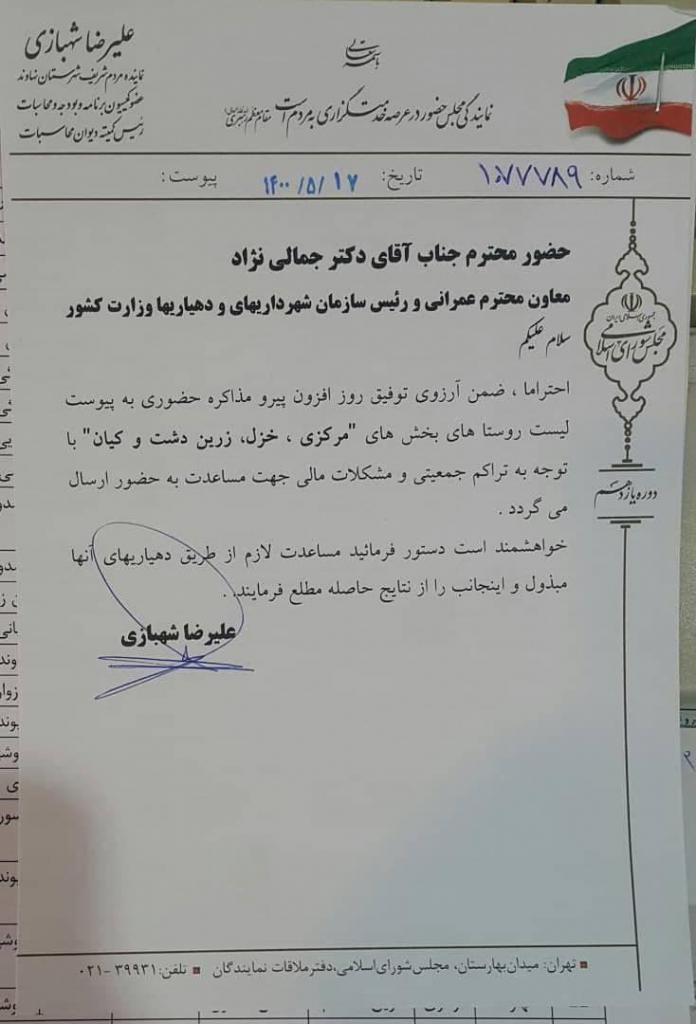 باسمه تعالی
علیرضا شهبازی
نماینده مردم شریف شهرستان نهاوند
عضو کمیسیون برنامه و بودجه و محاسبات
رئیس کمیته دیوان محاسبات
نمایندگی مجلس حضور در عرصه خدمتگزاری به مردم است مقام معظم رهبری
شماره: ۱۰۷۷۸۹ تاریخ: ۱۴۰۰/۵/۱۷ پیوست:
حضور محترم جناب آقای دکتر جمالی نژاد
معاون محترم عمرانی و رئیس سازمان شهرداریهای و دهیاریها وزارت کشور
سلام علیکم
احتراما ، ضمن آرزوی توفیق روز افزون پیرو مذاکره حضوری به پیوست
لیست روستا های بخش های "مرکزی ، خزل، زرین دشت و کیان" با
توجه به تراکم جمعیتی و مشکلات مالی جهت مساعدت به حضور ارسال
می گردد .
خواهشمند است دستور فرمائید مساعدت لازم از طریق دهیاریهای آنها
مبذول و اینجانب را از نتایج حاصله مطلع فرمایند .
علیرضا شهبازی
جمهوری اسلامی ایران
مجلس شورای اسلامی
دوره یازدهم
تهران: میدان بهارستان، مجلس شورای اسلامی، دفتر ملاقات نمایندگان تلفن: ۳۹۹۳۱ -۰۲۱